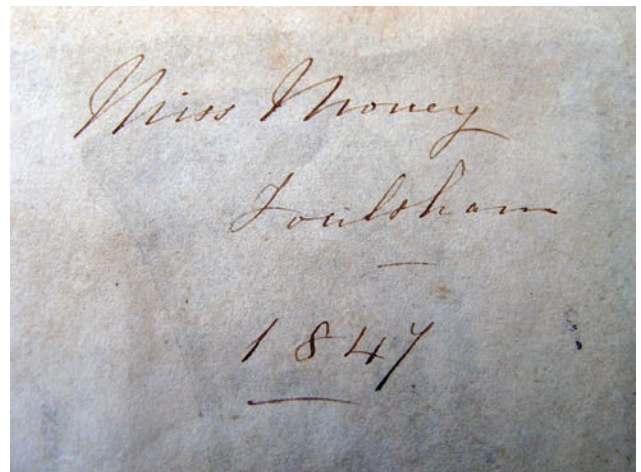 Miss Money
Foulsham
1847